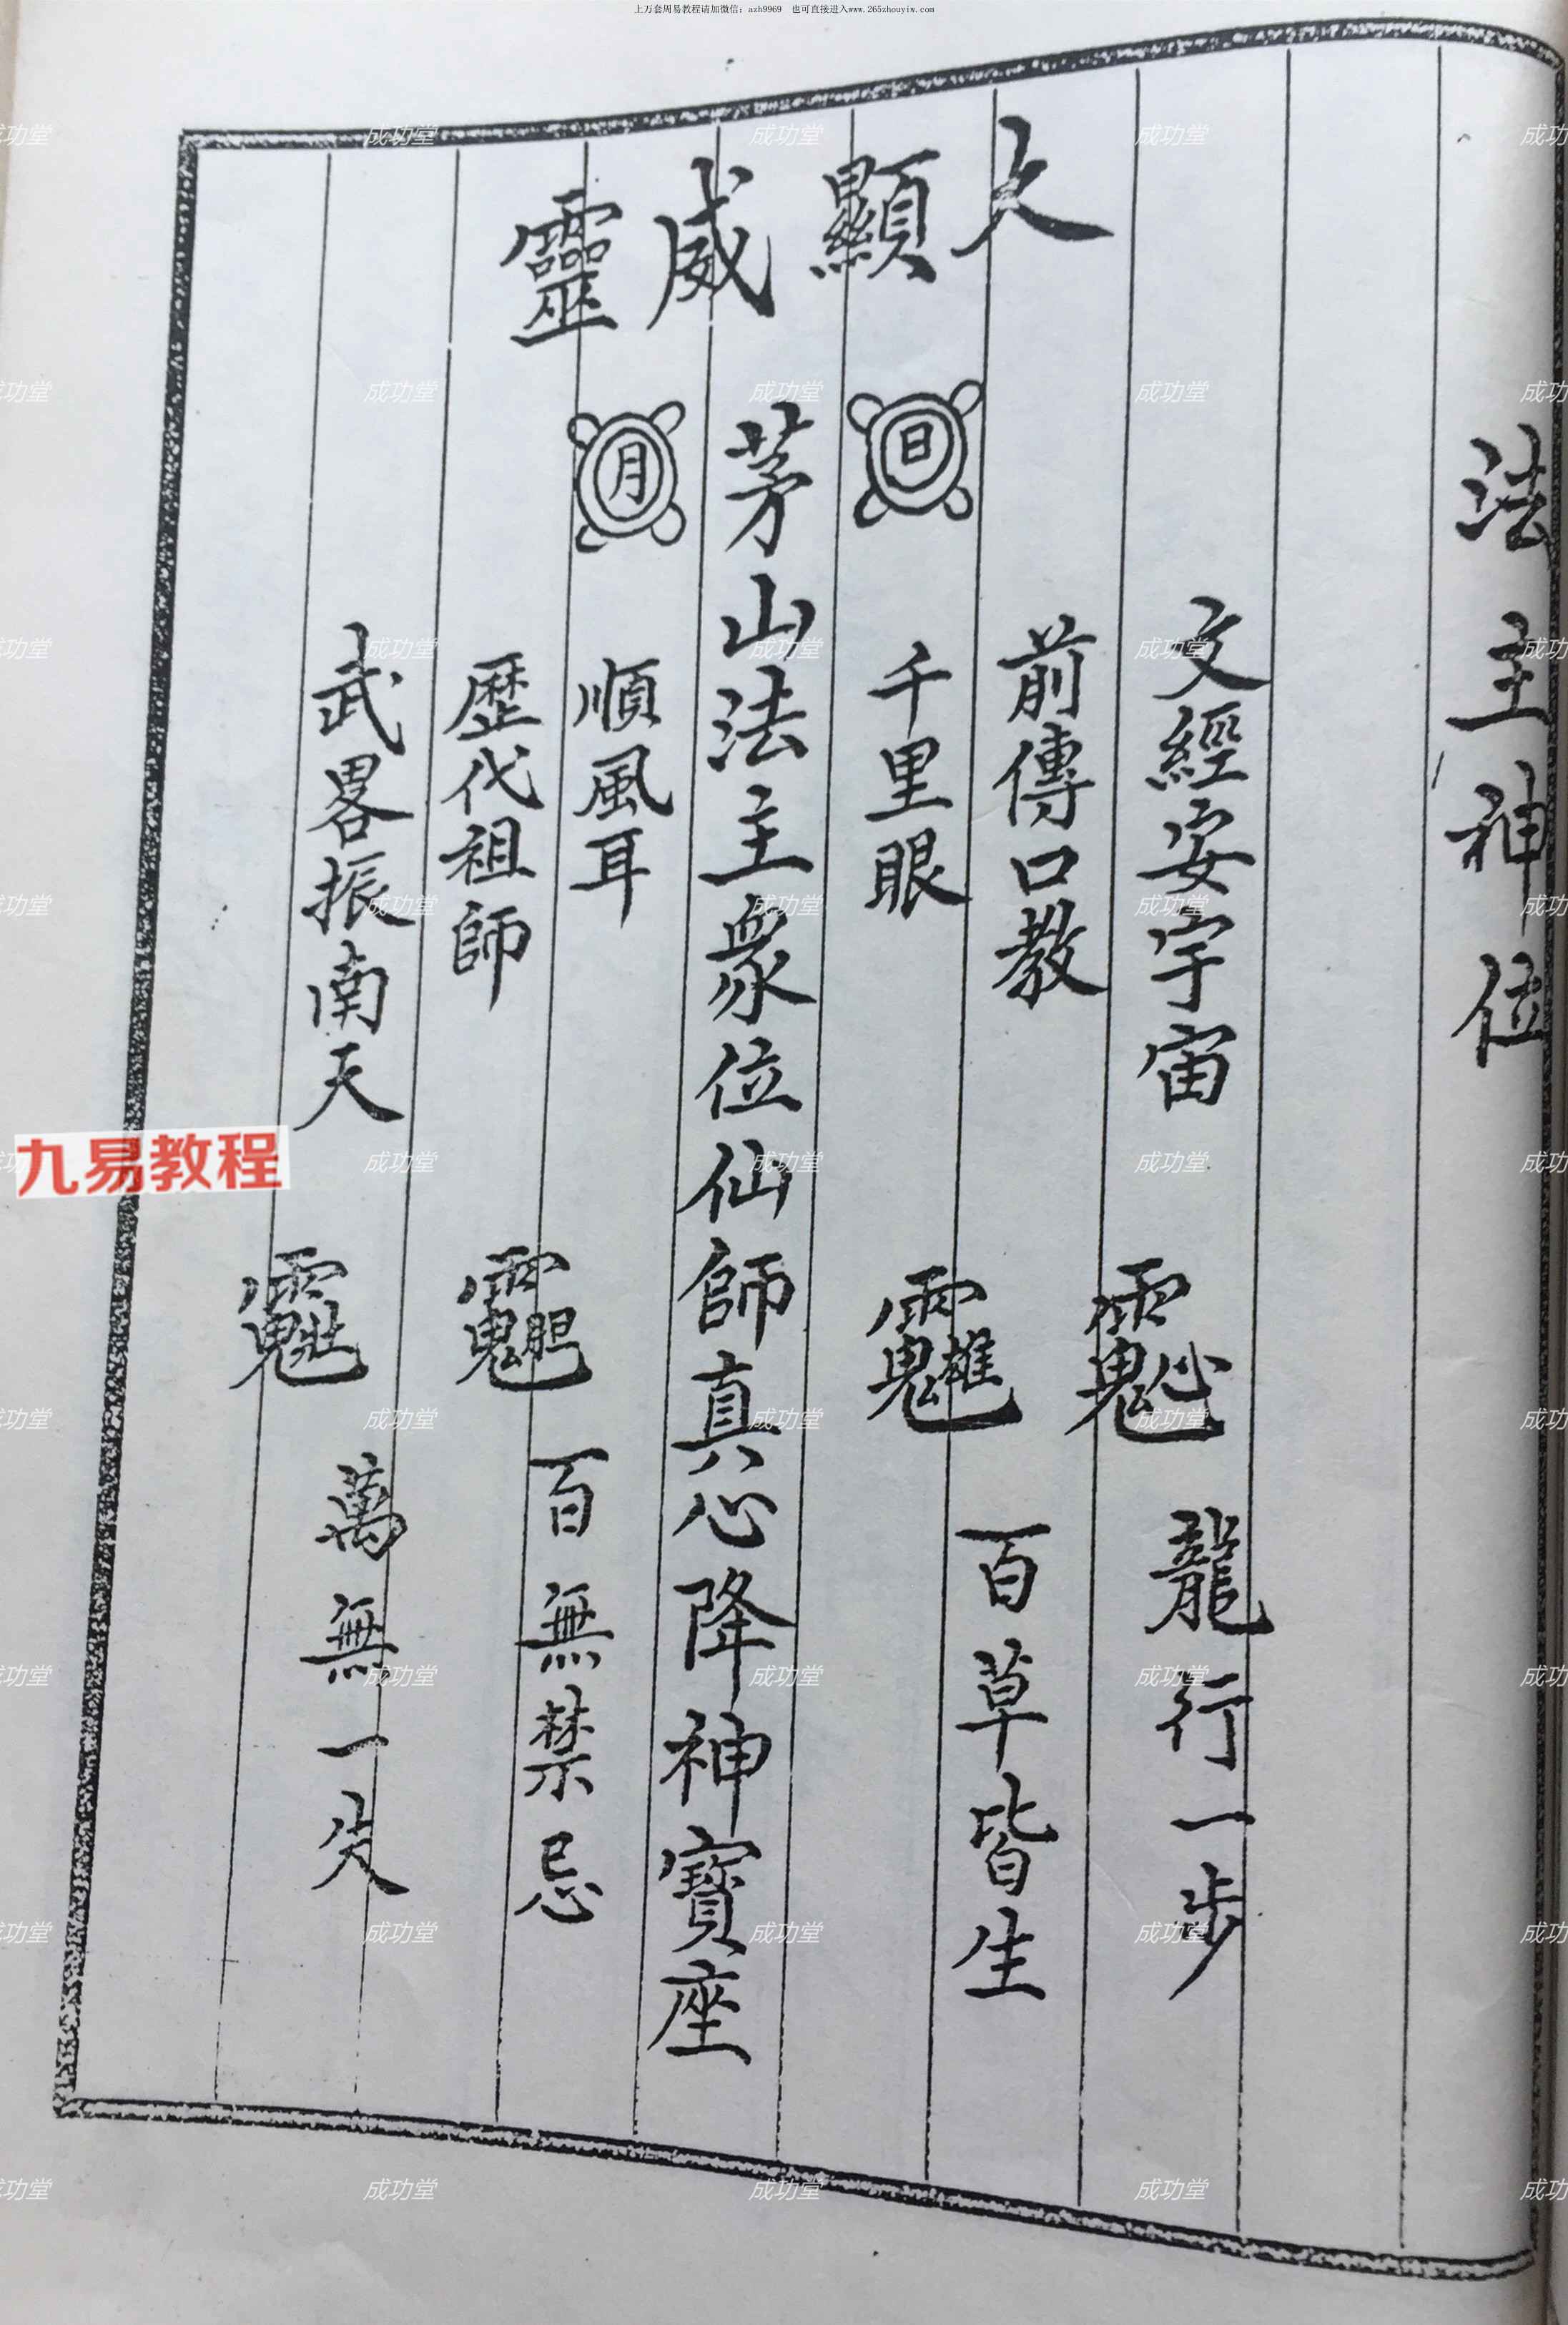 上万套周易教程请加微信：azh9969 也可直接进入www.265zhouyiw.com
法主神位
大顯威靈
文經安宇宙
龍行一步
前傳口教
百草皆生
日
千里眼
茅山法主衆位仙師真心降神寶座
月
順風耳
百無禁忌
歷代祖師
武畧振南天
萬無一失
九易教程
成功堂